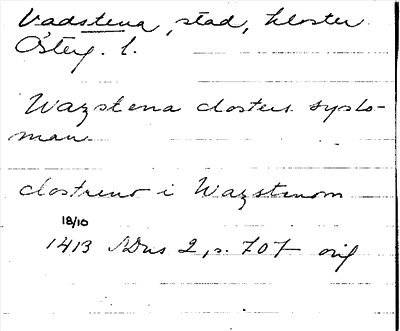 Vadstena, stad, kloster
Österg. l.
Wazstena closters syslo-
man
clostreno i Wazstenom
18/10
1413 SDns 2, s. 707 orig